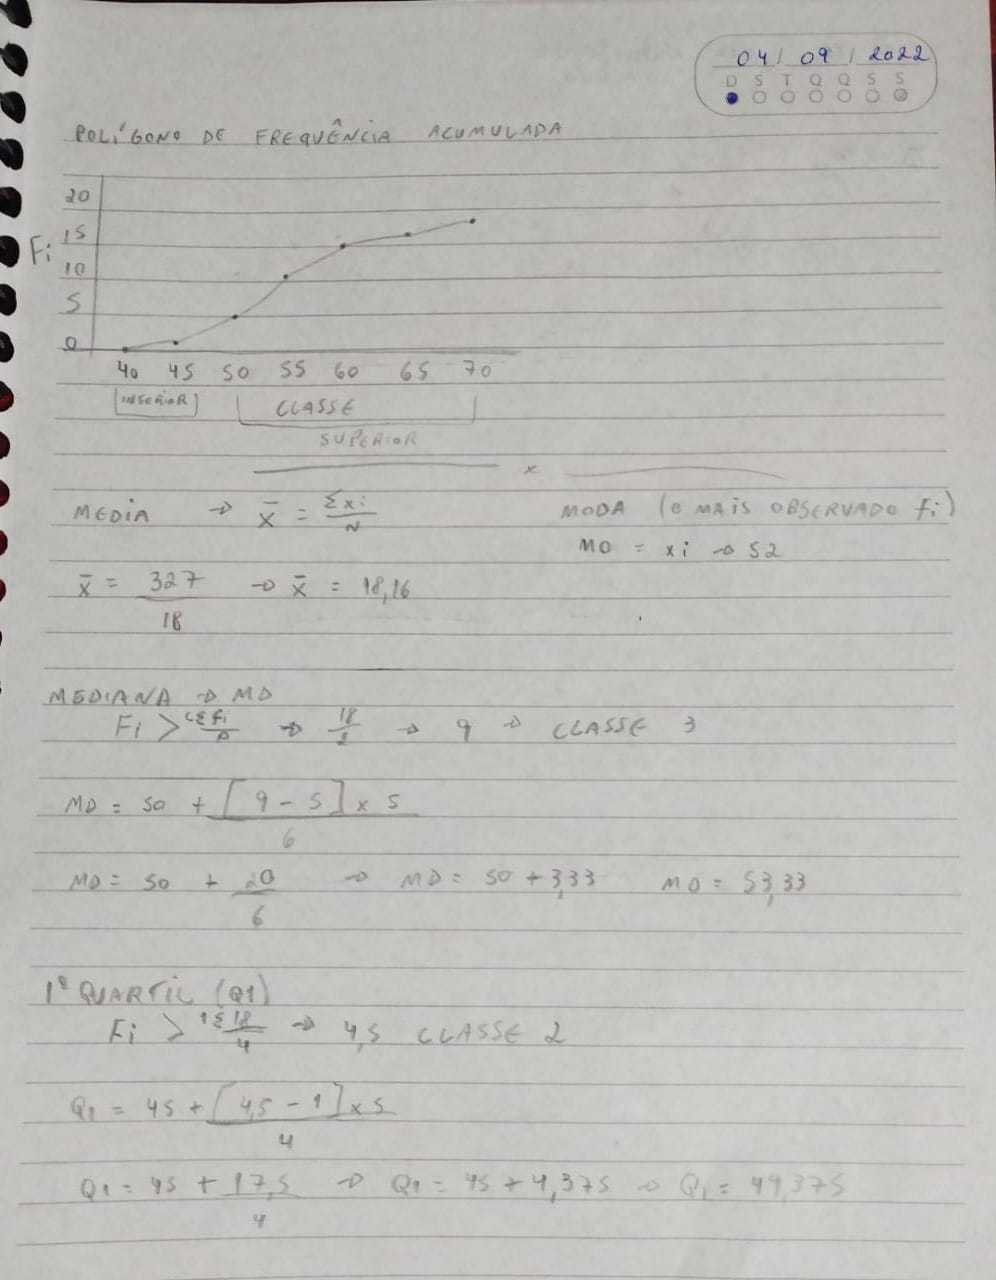 04/ 09 / 2022
D S T Q Q S S
POLÍGONO DE FREQUÊNCIA ACUMULADA
20
15
Fi
10
5
0
40 45 50 55 60 65 70
INFERIOR CLASSE
SUPERIOR
x
MEDIA → x̄ = Σxi / N
MODA (O MAIS OBSERVADO fi)
MO = xi → 52
x̄ = 327 / 18 → x̄ = 18,16
MEDIANA → MD
Fi > → 18 / 2 → 9 → CLASSE 3
MD = 50 + [9 - 5] x 5 / 6
MD = 50 + 20 / 6 → MD = 50 + 3,33 MD = 53,33
1º QUARTIL (Q1)
Fi > 1Σ18 / 4 → 4,5 CLASSE 2
Q1 = 45 + [4,5 - 1] x 5 / 4
Q1 = 45 + 17,5 / 4 → Q1 = 45 + 4,375 → Q1 = 49,375